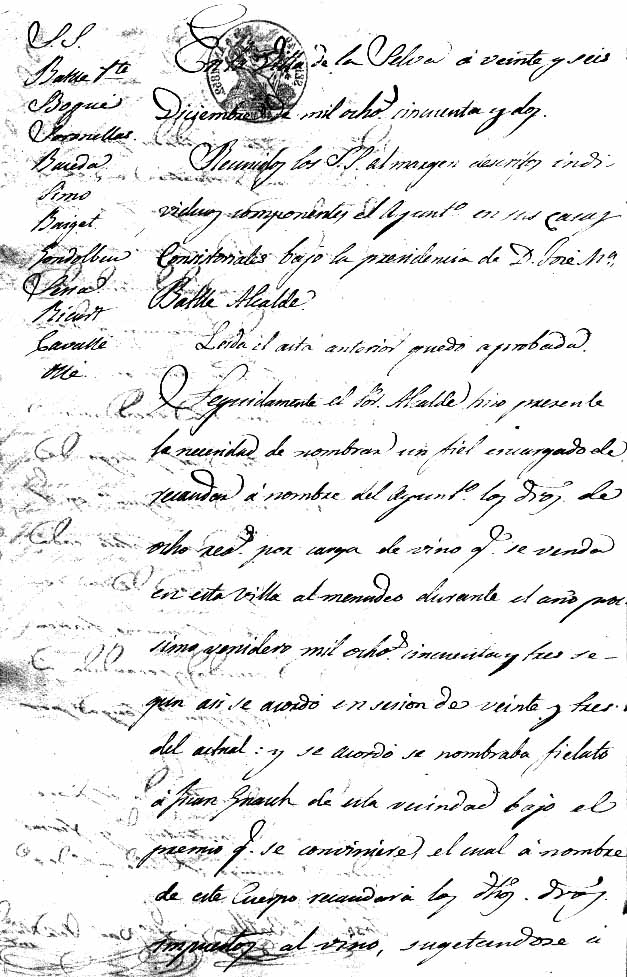 S.S.
Batlle Pte
Bogué
Baseda
Simó
Baiget
Ricart
Cavallé
Ollé
En la Villa de la Selva á veinte y seis
Diciembre de mil ochos. cincuenta y dos.
Reunidos los S.S. al margen descritos indi-
viduos componentes el Ayuntº. en sus casas
Consistoriales bajo la presidencia de D. José Mª.
Batlle Alcalde.
Leida el acta anterior quedó aprobada.
Seguidamente el Sor. Alcalde hizo presente
la necesidad de nombrar un fiel encargado de
recaudar á nombre del Ayuntº. los dros. de
ocho reas. por carga de vino q. se venda
en esta villa al menudeo durante el año pro-
simo venidero mil ochos. cincuenta y tres se-
gun asi se acordó en sesion de veinte y tres
del actual: y se acordó se nombraba fielato
á Juan de esta vecindad bajo el
premio q. se conviniere, el cual á nombre
de este Cuerpo recaudará los dhos. dros.
impuestos al vino, sugetandose á